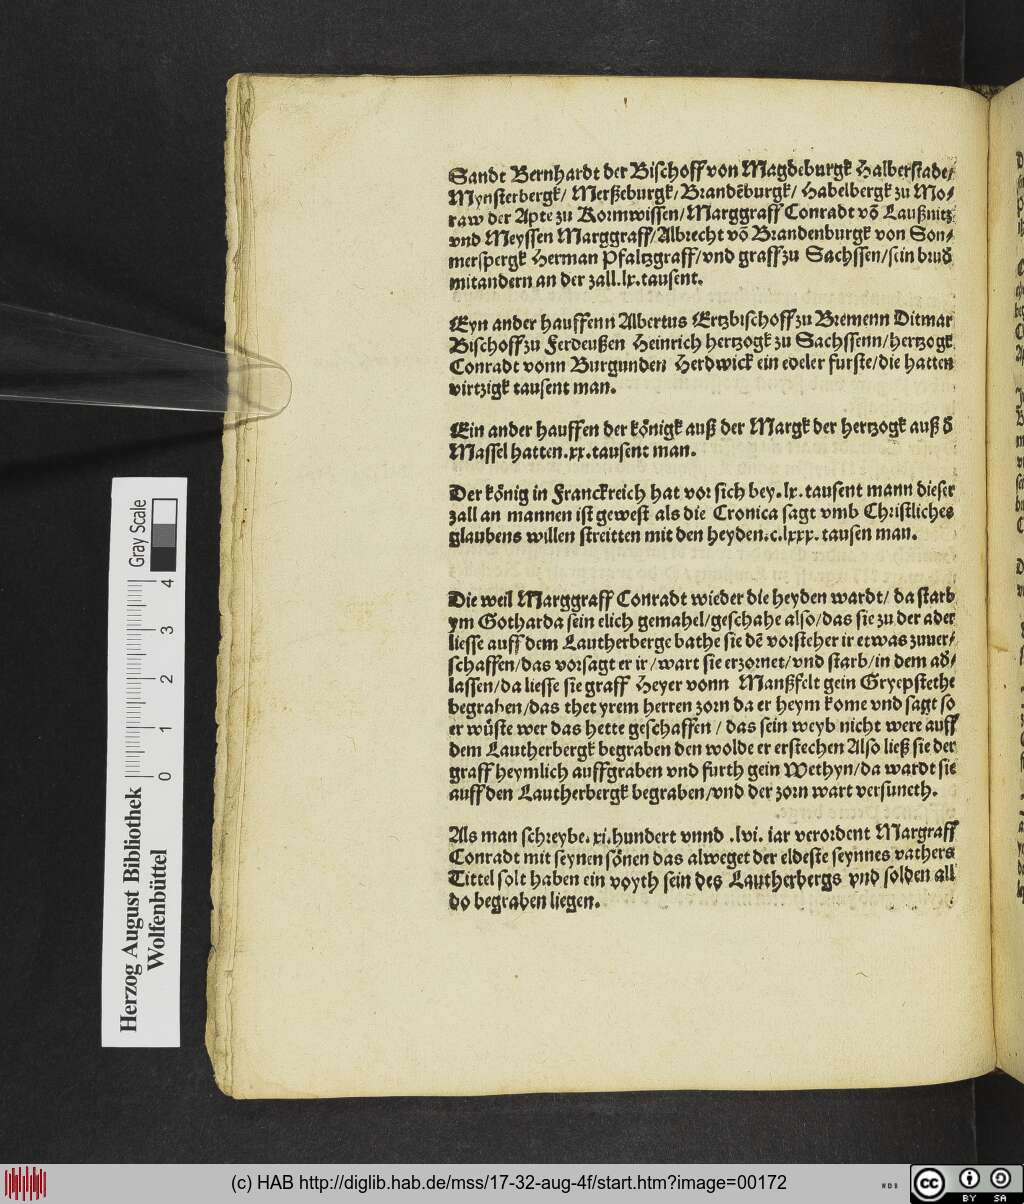 Sandt Bernhardt der Bischoff von Magdeburgk Halberstade/
Mynsterbergk/ Merßeburgk/ Brandēburgk/ Habelbergk zu Mo/
raw der Apte zu Kormwissen/ Marggraff Conradt vō Laußnitz
vnd Meyssen Marggraff/ Albrecht vō Brandenburgk von Son/
merspergk Herman Pfaltzgraff/ vnd graff zu Sachssen/ sein brud̄
mitandern an der zall.lx.tausent.
Eyn ander hauffenn Albertus Ertzbischoff zu Bremenn Ditmar
Bischoff zu Ferdeußen Heinrich hertzogk zu Sachssenn/ hertzogk
Conradt vonn Burgunden Herdwick ein edeler furste/ die hatten
virtzigk tausent man.
Ein ander hauffen der kǒnigk auß der Margk der hertzogk auß d̄
Massel hatten.xx.tausent man.
Der kǒnig in Franckreich hat vor sich bey.lx.tausent mann dieser
zall an mannen ist gewest als die Cronica sagt vmb Christliches
glaubens willen streitten mit den heyden.c.lxxx.tausen man.
Die weil Marggraff Conradt wieder die heyden wardt/ da starb
ym Gotharda sein elich gemahel/ geschahe also/ das sie zu der ader
liesse auff dem Lautherberge bathe sie dē vorsteher ir etwas zuuer/
schaffen/ das vorsagt er ir/ wart sie erzornet/ vnd starb/ in dem ad̄/
lassen/ da liesse sie graff Heyer vonn Manßfelt gein Gryepstethe
begraben/ das thet yrem herren zorn da er heym kome vnd sagt so
er wǔste wer das hette geschaffen/ das sein weyb nicht were auff
dem Lautherbergk begraben den wolde er erstechen Also ließ sie der
graff heymlich auffgraben vnd furth gein Wethyn/ da wardt sie
auff den Lautherbergk begraben/ vnd der zorn wart versuneth.
Als man schreybe.xi.hundert vnnd .lvi. iar verordent Margraff
Conradt mit seynen sǒnen das alweget der eldeste seynnes vathers
Tittel solt haben ein voyth sein des Lautherbergs vnd solden all
do begraben liegen.
Gray Scale
0 1 2 3 4
Herzog August Bibliothek
Wolfenbüttel
(c) HAB http://diglib.hab.de/mss/17-32-aug-4f/start.htm?image=00172
WDB
cc BY SA